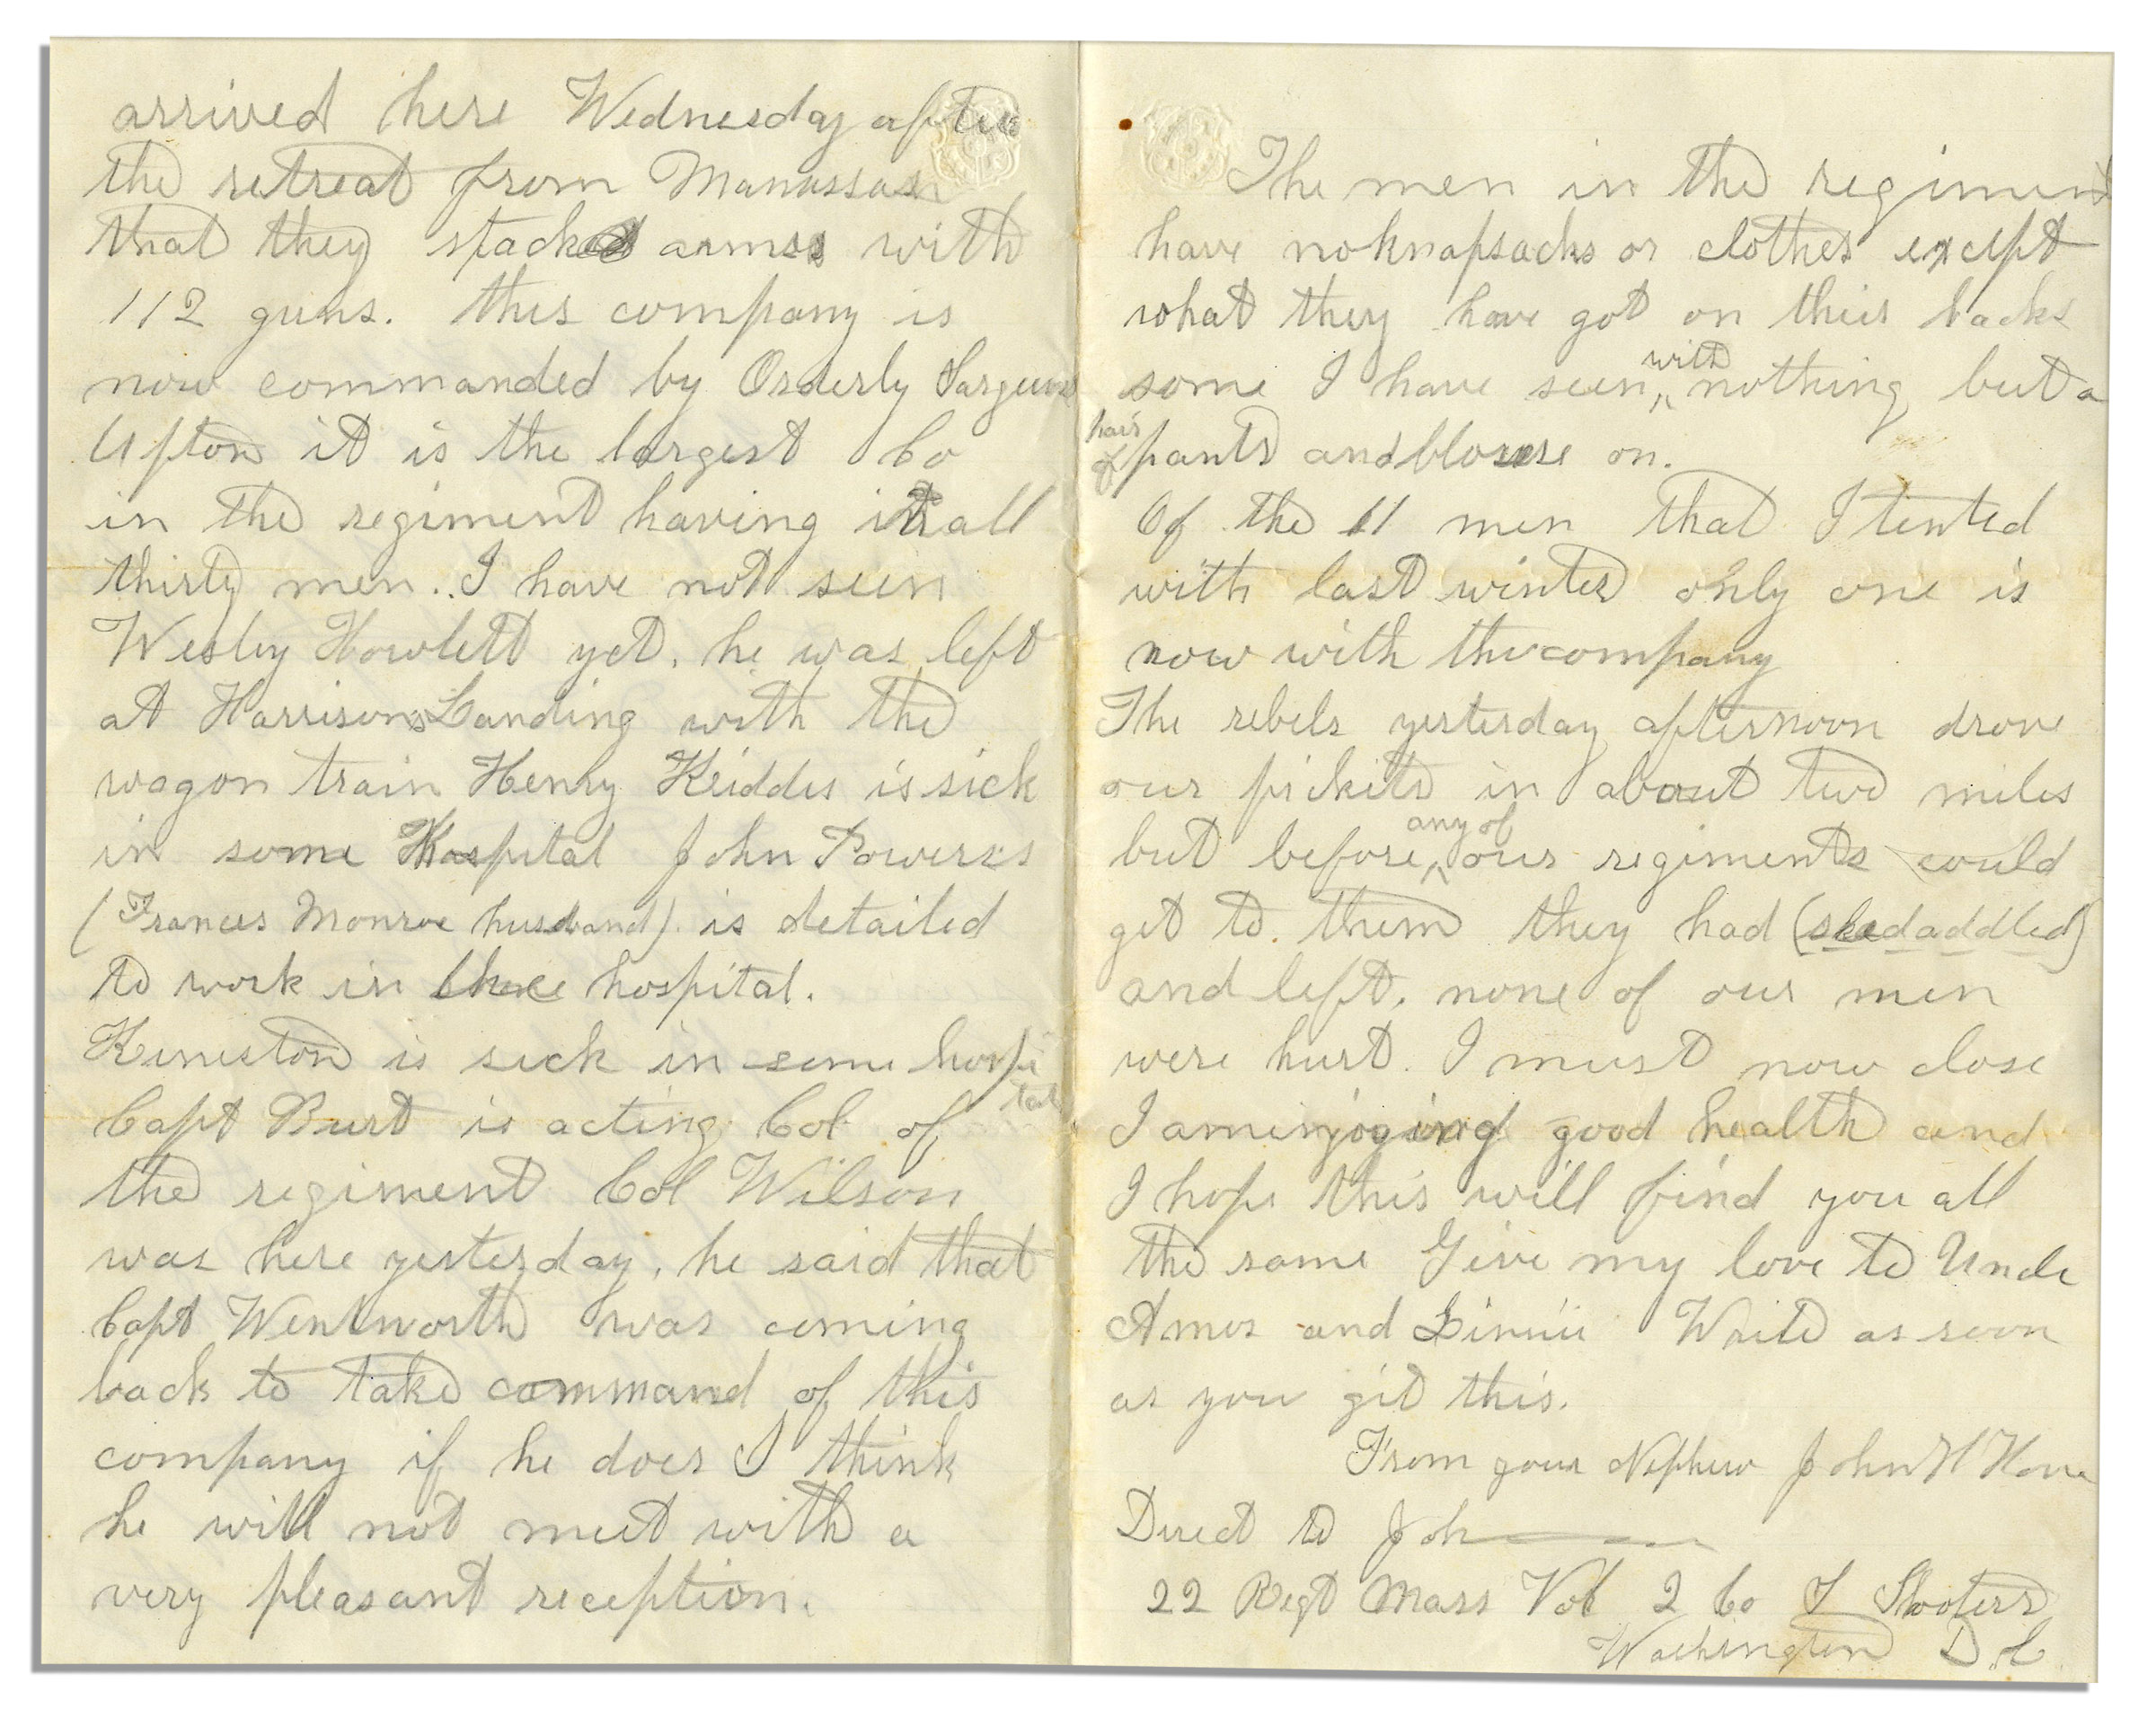 arrived here Wednesday after
the retreat from Manassas
that they stacked arms with
112 guns. this company is
now commanded by Orderly Sargent
Upton it is the largest Co
in the regiment having in all
thirty men.. I have not seen
Wesley Howlett yet, he was left
at Harrisons Landing with the
wagon train Henry Kiddes is sick
in some Hospital John Powerss
(Frances Monroe husband) is detailed
to work in hospital.
Keniston is sick in some hospi
tal
Capt Burt is acting Col of
the regiment Col Wilson
was here yesterday, he said that
Capt Wentworth was coming
back to take command of this
company if he does I think
he will not meet with a
very pleasant reception.
The men in the regiment
have no knapsacks or clothes except
what they have got on their backs
some I have seen with nothing but a
pair of pants and blouse on.
Of the 11 men that I tented
with last winter only one is
now with the company
The rebels yesterday afternoon drove
our pickits in about two miles
but before any of our regiments could
get to them they had (skedaddled)
and left, none of our men
were hurt. I must now close
I am injoying good health and
I hope this will find you all
the same Give my love to Uncle
Amos and Write as soon
as you git this.
From your Nephew John H
Direct to Joh
22 Regt Mass Vol 2 Co S Shooters
Washington D.C.